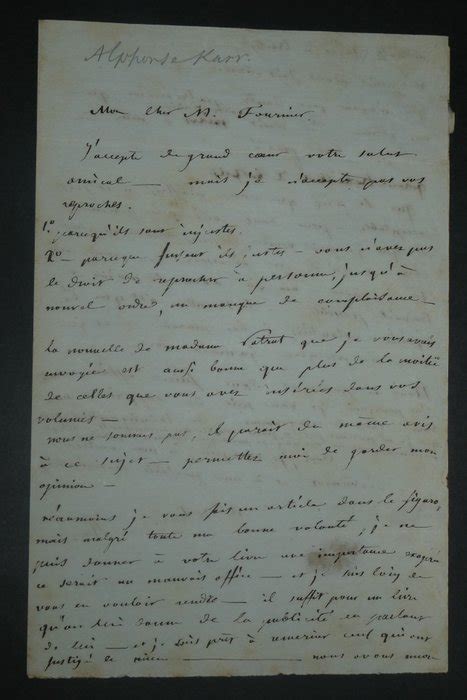 Alphonse Karr.
Mon cher M. Fournier.
J'accepte de grand cœur votre salut
amical — mais je n'accepte pas vos
reproches.
1º parcequ'ils sont injustes.
2º — parceque fussent ils justes — vous n'avez pas
le droit de reprocher à personne, jusqu'à
nouvel ordre, un manque de complaisance —
La nouvelle de madame que je vous avais
envoyée est aussi bonne que plus de la moitié
de celles que vous avez insérées dans vos
volumes —
nous ne sommes pas, il parait du même avis
à ce sujet — permettez moi de garder mon
opinion —
néanmoins je vous fais un article dans le figaro,
mais malgré toute ma bonne volonté, je ne
puis donner à votre livre une importance
ce serait un mauvais office — et je suis loin de
vous en vouloir rendre — il suffit pour un livre
qu'on lui donne de la publicité en parlant
de lui — et je suis prêt à ceux qui ont
le mien — nous avons